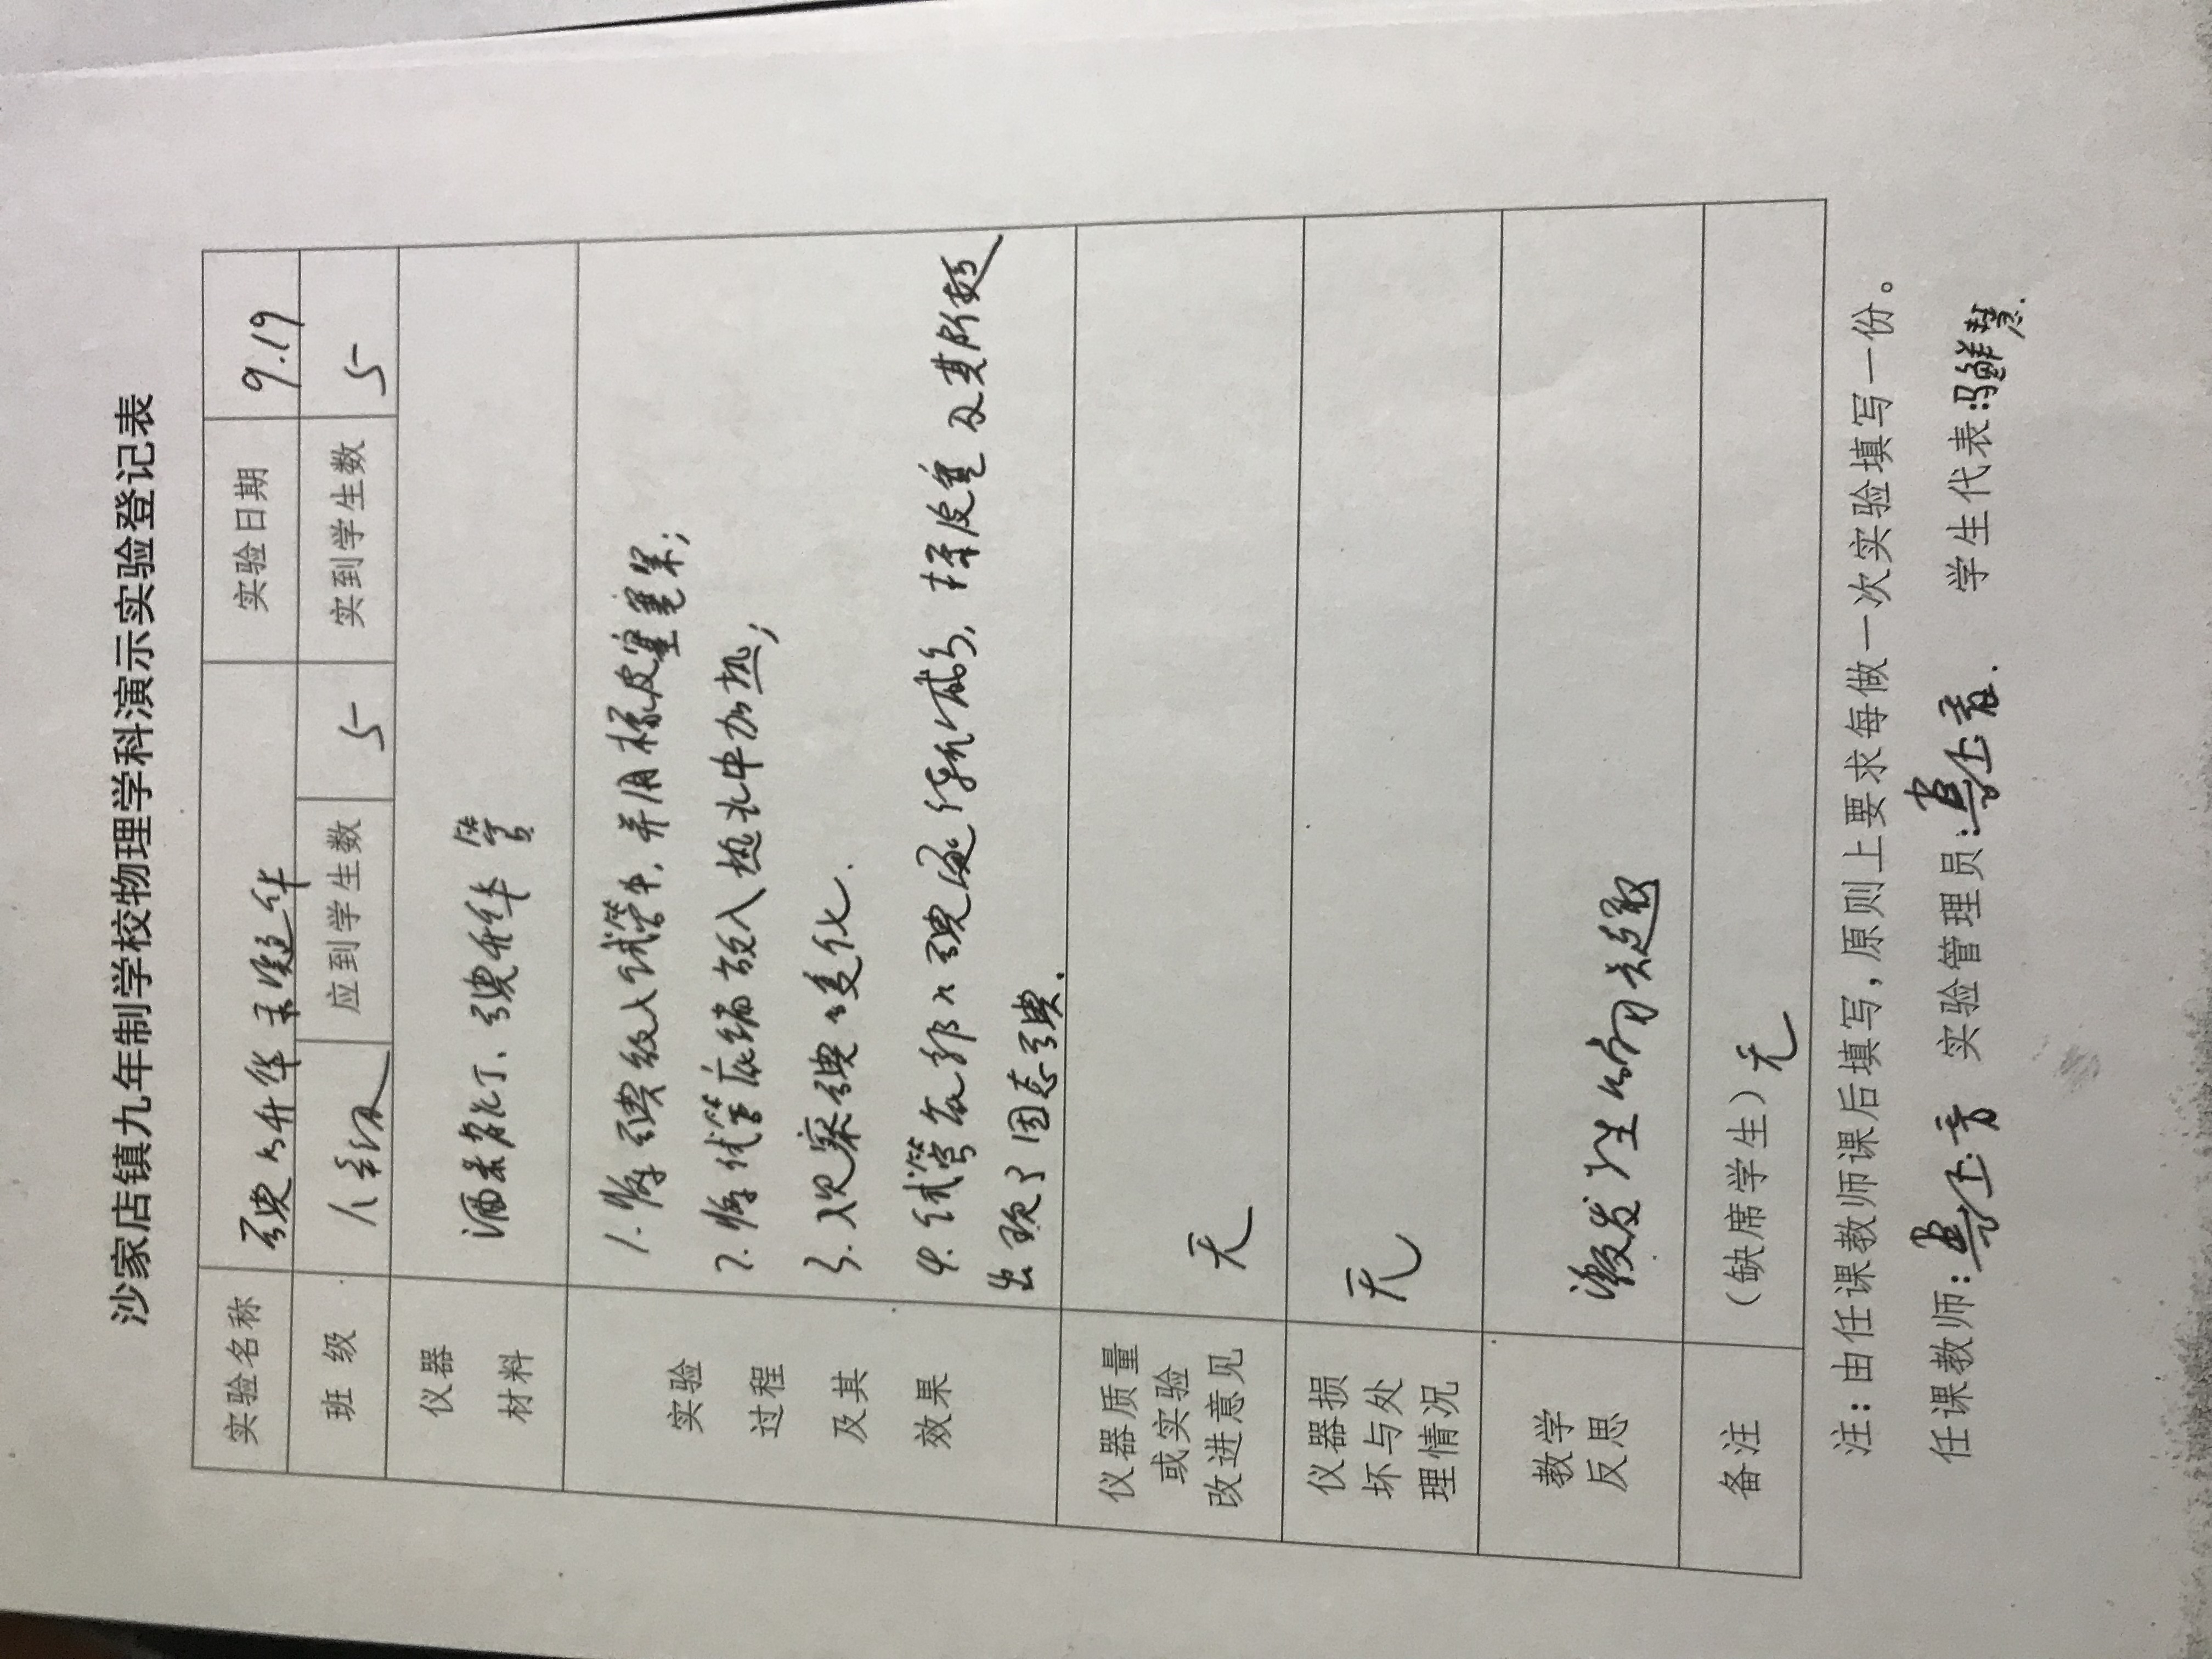 沙家店镇九年制学校物理学科演示实验登记表
实验名称 碘的升华和凝华 实验日期 9.19
班 级 八年级 应到学生数 5 实到学生数 5
仪器
材料
酒精灯、碘升华管
实验
过程
及其
效果
1.将碘放入试管中,并用橡皮塞塞紧;
2.将试管底端放入热水中加热;
3.观察碘的变化.
4.试管底部的碘逐渐减少,橡皮塞及其附近
出现了固态碘.
仪器质量
或实验
改进意见
无
仪器损
坏与处
理情况
无
教学
反思
激发学生的兴趣
备注 (缺席学生)无
注:由任课教师课后填写,原则上要求每做一次实验填写一份。
任课教师: 实验管理员: 学生代表:冯鲜慧.